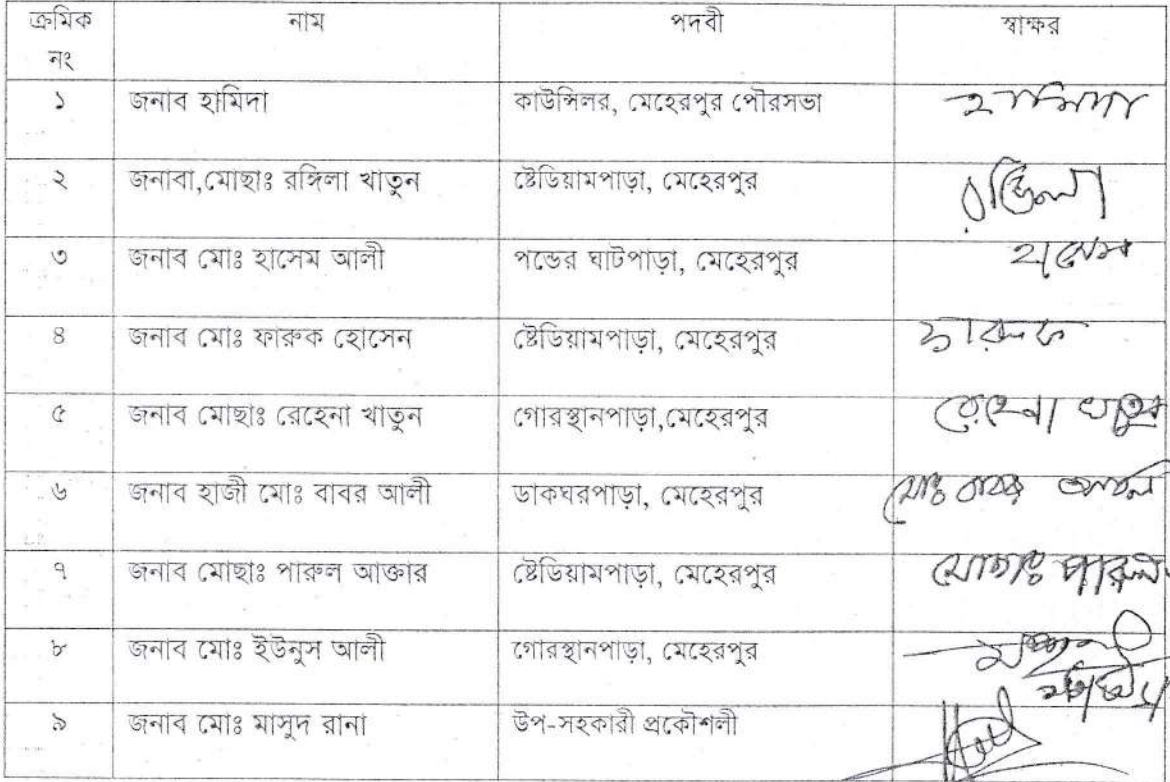 ক্রমিক নাম পদবী স্বাক্ষর
নং
১ জনাব হামিদা কাউন্সিলর, মেহেরপুর পৌরসভা হামিদা
২ জনাবা,মোছাঃ রঙ্গিলা খাতুন ষ্টেডিয়ামপাড়া, মেহেরপুর রঙ্গিলা
৩ জনাব মোঃ হাসেম আলী পন্ডের ঘাটপাড়া, মেহেরপুর হাসেম
৪ জনাব মোঃ ফারুক হোসেন ষ্টেডিয়ামপাড়া, মেহেরপুর ফারুক
৫ জনাব মোছাঃ রেহেনা খাতুন গোরস্থানপাড়া,মেহেরপুর রেহেনা খাতুন
৬ জনাব হাজী মোঃ বাবর আলী ডাকঘরপাড়া, মেহেরপুর মোঃ বাবর আলী
৭ জনাব মোছাঃ পারুল আক্তার ষ্টেডিয়ামপাড়া, মেহেরপুর মোছাঃ পারুল
৮ জনাব মোঃ ইউনুস আলী গোরস্থানপাড়া, মেহেরপুর
৯ জনাব মোঃ মাসুদ রানা উপ-সহকারী প্রকৌশলী